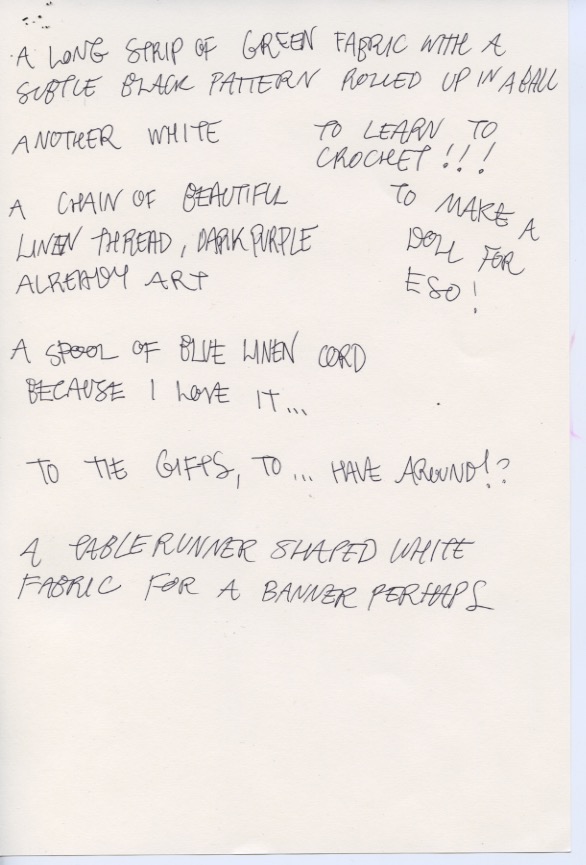 A LONG STRIP OF GREEN FABRIC WITH A
SUBTLE BLACK PATTERN ROLLED UP IN A BALL
ANOTHER WHITE
TO LEARN TO
CROCHET!!!
A CHAIN OF BEAUTIFUL
LINEN THREAD, DARK PURPLE
ALREADY ART
TO MAKE A
DOLL FOR
ESO!
A SPOOL OF BLUE LINEN CORD
BECAUSE I LOVE IT...
TO TIE GIFTS, TO... HAVE AROUND!?
A TABLERUNNER SHAPED WHITE
FABRIC FOR A BANNER PERHAPS